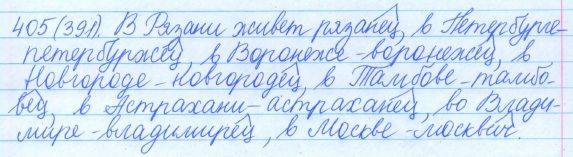 405(391). В Рязани живет рязанец, в Петербурге-
петербуржец, в Воронеже-воронежец, в
Новгороде-новгородец, в Тамбове-тамбо-
вец, в Астрахани-астраханец, во Влади-
мире-владимирец, в Москве-москвич.